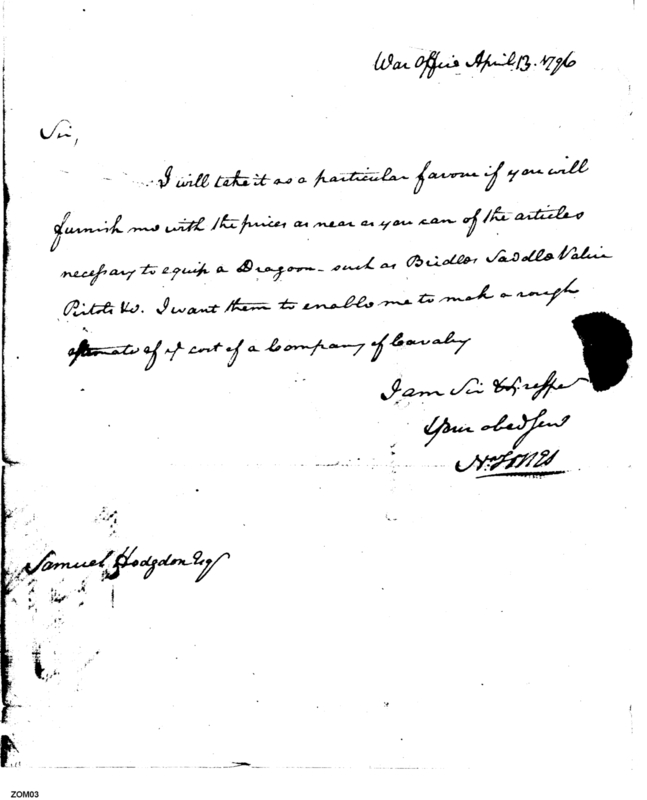 War Office April 13. 1796
Sir,
I will take it as a particular favour if you will
furnish me with the prices as near as you can of the articles
necessary to equip a Dragoon - such as Bridles Saddle Valise
Pistols &c. I want them to enable me to mak a rough
estimate of ye cost of a Company of Cavalry
I am Sir very respy
Your obed Serv
Wm Jones
Samuel Hodgdon Esq
ZOM03